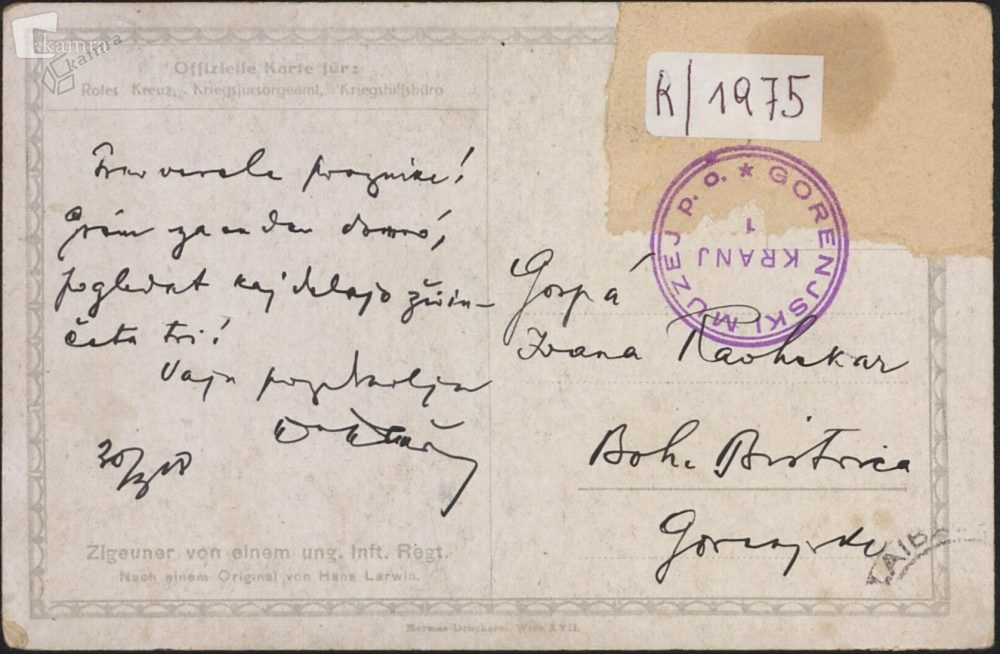 kamra
kamra
Offizielle Karte für:
Rotes Kreuz, Kriegsfürsorgeamt, Kriegshilfsbüro
K/1975
GORENJSKI MUZEJ p. o. ★
KRANJ
1
vesele praznike!
Grem za en dan domó,
pogledat kaj delajo živin-
četa tri!
Vaju pozdravlja
Gospá
Ivana
Boh. Bistrica
Gorenjsko
LAIB
Zigeuner von einem ung. Inft. Regt.
Nach einem Original von Hans Larwin.
Hermes-Druckerei, Wien XVII.